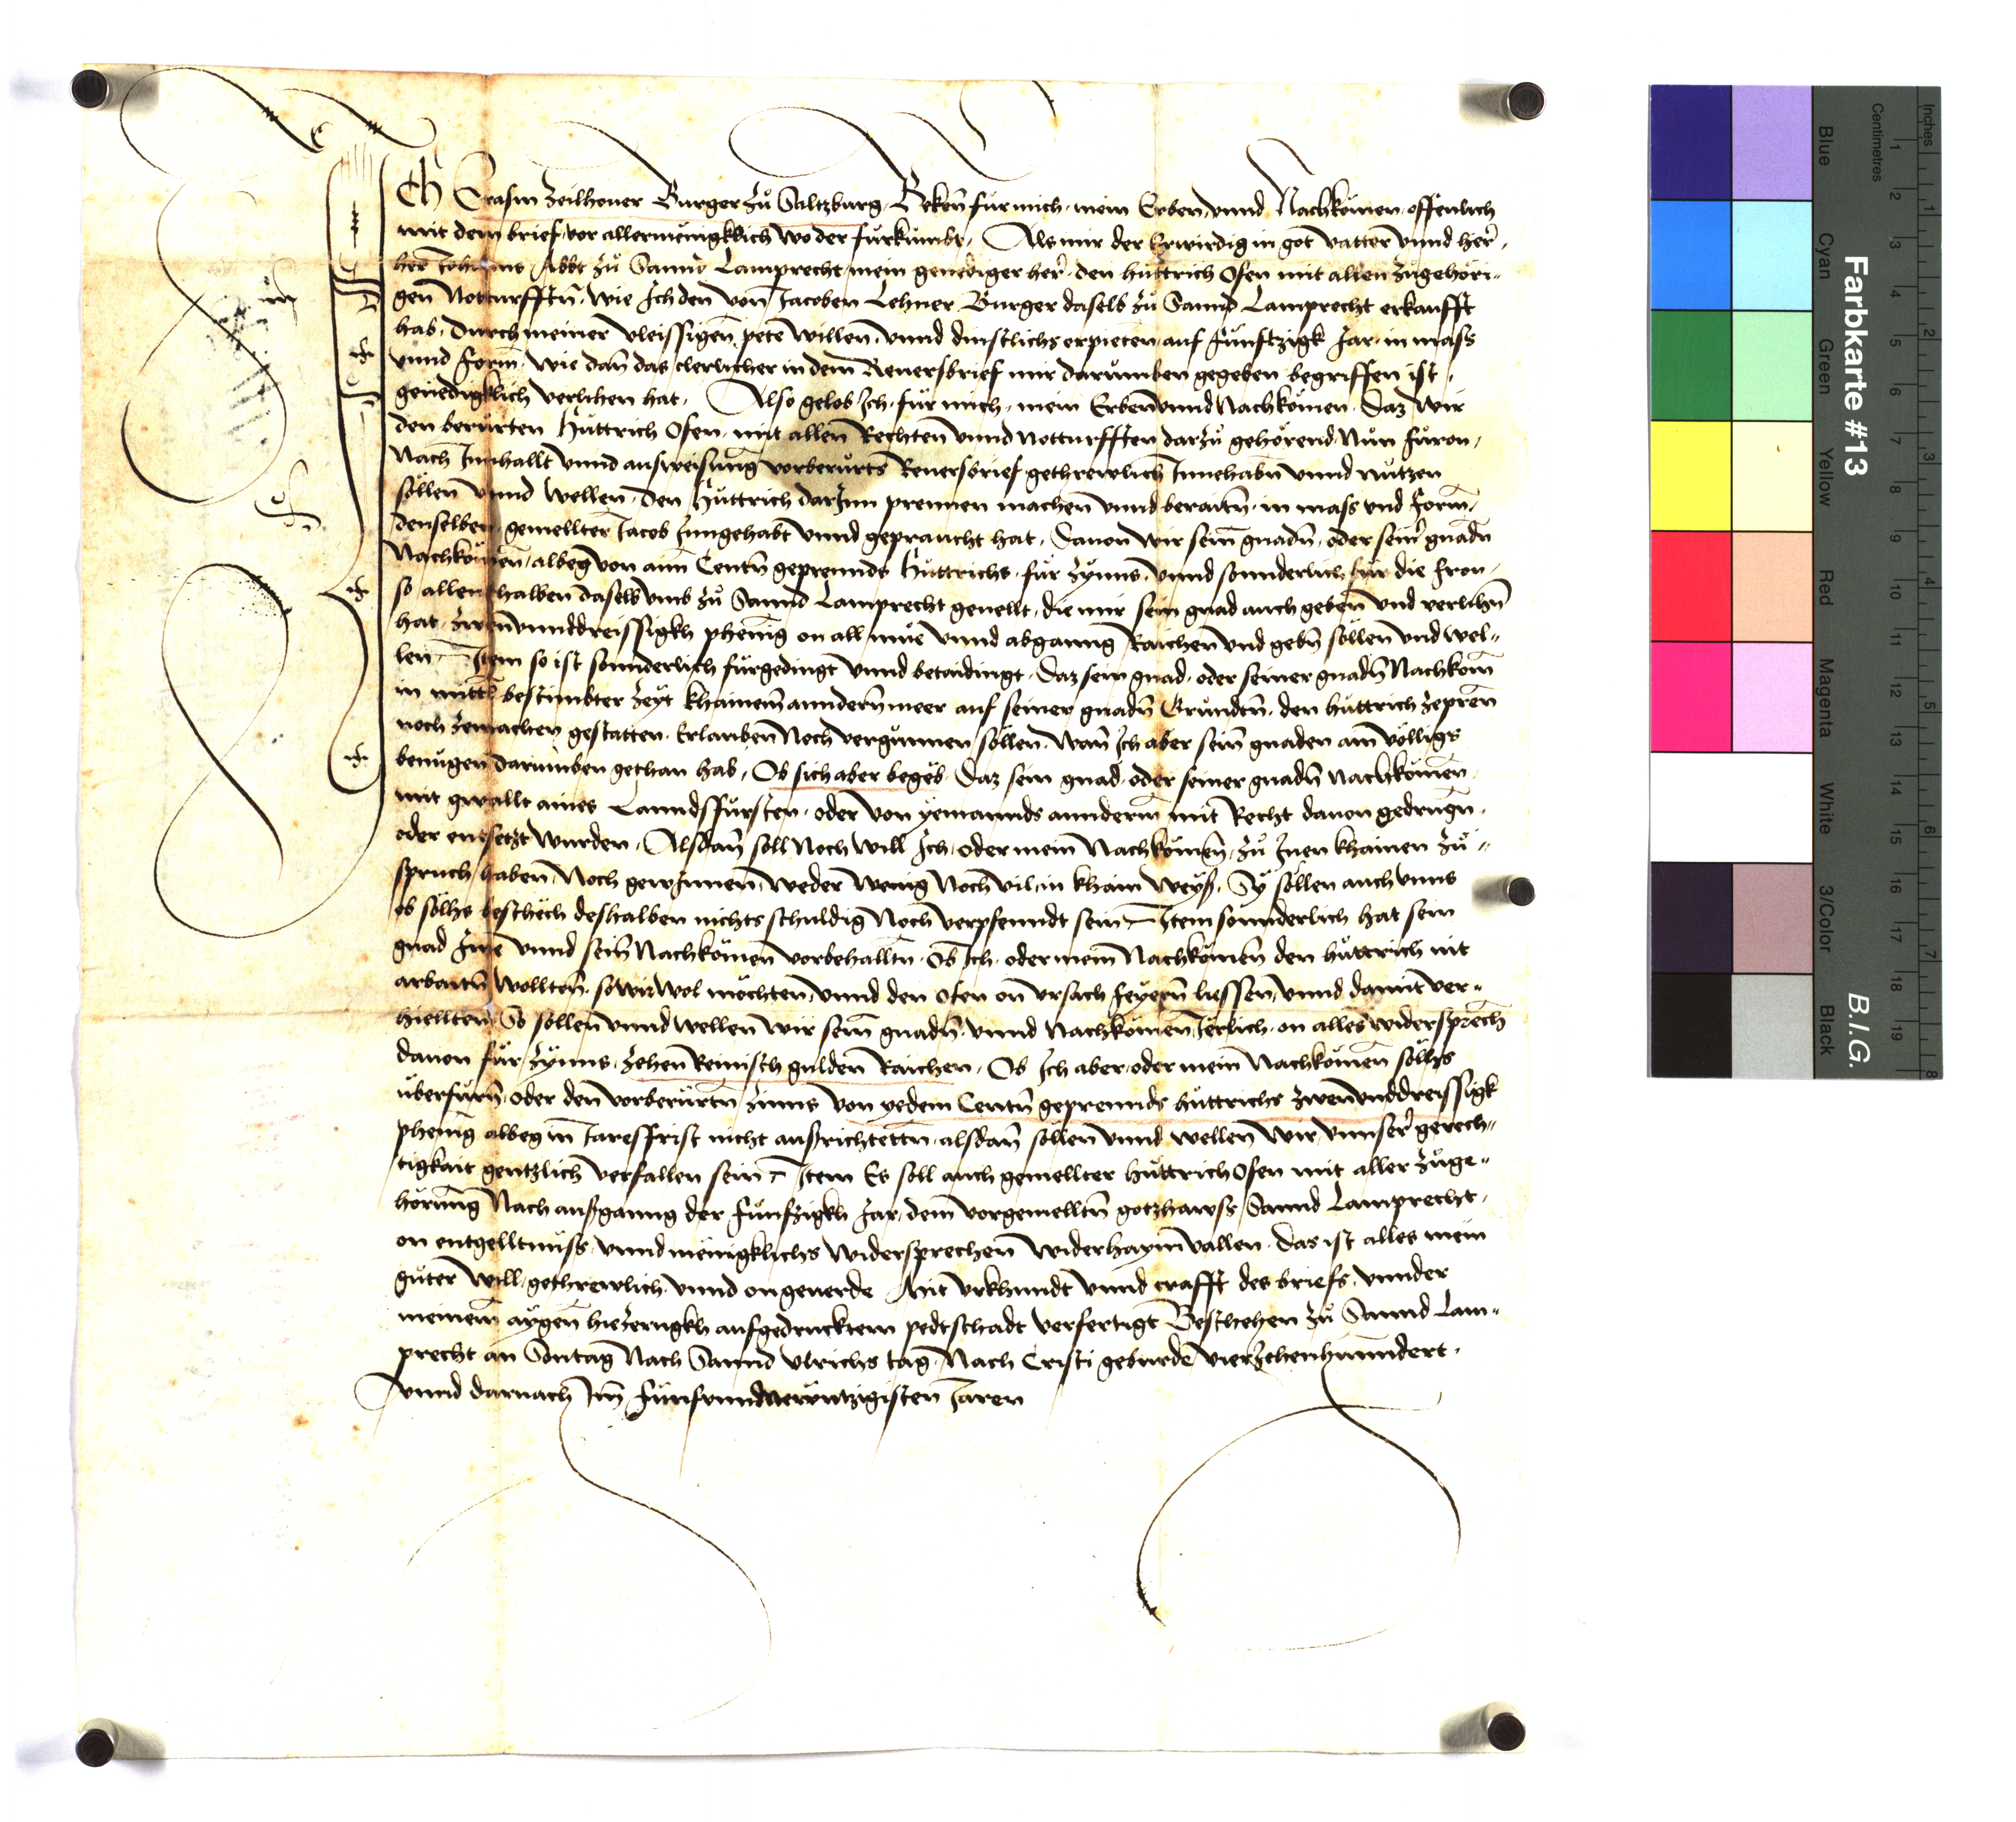 Ich Erasm Zeilhover Burger zů Saltzburg, Beken̄ für mich, mein Erben, unnd Nachkomen, offenlich
mit dem brief, vor allermenigklich wo der fürkumbt, Als mir der Erwirdig in got vatter unnd her̄,
her̄ Johanns Abbt zů Sannd Lamprecht, mein genediger her̄, den hüttrich Ofen mit allen zůgehöri„
gen Notturfftn̄, wie Ich den von Jacoben Lehner Burger daselb zů Sannd Lamprecht erkaufft
hab, durch meiner vleissigen pete willen, unnd dinstlichs erpieten auf fünftzigk Jar, in mass
unnd form, wie dan̄ das clerlicher in dem Reversbrief mir darumben gegeben begriffen ist,
genedigklich verlihen hat, Also gelob Ich, für mich, mein Erben unnd Nachkomen, Daz wir
den berürten Hüttrich Ofen, mit allen Rechten unnd notturfften darzů gehörend, Nun füron,
Nach Innhallt unnd ausweisung vorberürts Reversbrief gethrewlich Innehabn̄ unnd nützen
söllen unnd wellen, den Hüttrich darInn prennen machen unnd beraitn̄, in mass und form,
denselben, gemellter Jacob Inngehabt unnd gepraucht hat, Davon wir sein̄ gnadn̄, oder sein̄ gnadn̄
Nachkomen, albeg von aim Centn̄ geprennds Hüttrichs, für Zynns, unnd sonnderlich für die fron,
so allenthalben daselb umb zů Sannd Lamprecht gevellt, die mir sein gnad auch geben und verlihn̄
hat, zwen unnddreissigkh phening on all müe unnd abganng Raichen und gebn̄ söllen und wel„
len, Item so ist sonnderlich fürgedingt unnd betaidingt, Daz sein gnad, oder seiner gnadn̄ Nachkom̄
in mittl bestimbter zeyt khainem anndern̄ meer auf seiner gnadn̄ Gründtn̄, den hüttrich zepren̄
noch zemachen gestatten, Erlauben Noch vergünnen söllen, wan̄ Ich aber sein̄ gnaden ain völligs
benügen darumben gethan hab, Ob sich aber begeb, Daz sein gnad, oder seiner gnadn̄ Nachkomen,
mit gwallt aines Lanndsfürsten, oder von yemannds annderm mit Recht davon gedrugn̄,
oder entsetzt wurden, Alsdan̄ soll Noch will Ich, oder mein Nachkomen̄, zů Inen khainen zů„
spruch haben, Noch gewInnen, weder wenig Noch vil, in khain weyß, Sy söllen auch unns
ob sölhs beschëch deshalben nichts schuldig Noch verpfenndt sein, Item sonnderlich hat sein
gnad Ime unnd sein̄ Nachkomen vorbehalltn̄, Ob Ich, oder mein Nachkomen̄ den hüttrich nit
arbaitn̄ wolltn̄, so wir wol möchten, unnd den ofen on ursach feyern̄ liessen, unnd damit ver„
hiellten, So söllen unnd wellen wir sein̄ gnadn̄, unnd Nachkomen Jerlich, on alles widersprech
davon für Zynns, zehen Reinisch gulden Raichen, Ob Ich aber, oder mein Nachkomen sölhs
überfürn̄, oder den vorberürtn̄ zinns von yedem Centn̄ geprennds hüttrichs zwenunddreissigk
phenig albeg in Jaresfrist nicht außrichtetn̄, alsdan̄ söllen unnd wellen wir, unnser̄ gerech„
tigkait gentzlich verfallen sein, Item Es soll auch gemellter hüttrich Ofen mit aller zůge„
hörung Nach außganng der fünfzigkh Jar, dem vorgemelltn̄ gotzhawss Sannd Lamprecht,
on entgelltnüss, unnd menigklichs widersprechen widerhaym vallen, das ist alles mein
güter will, gethrewlich unnd ongeverde, Mit urkhundt unnd crafft des briefs, unnder
meinem aygen hiezerugkh aufgedrucktem pedtschadt verfertigt, Beschehen zů Sannd Lam„
precht an Sontag Nach Sannd Ulrichs tag, Nach Cristi geburde vierzehenhunndert,
unnd darnach Im fünfunndnewntzigisten Jaren
Farbkarte #13
B.I.G.
Inches
Centimetres
Blue
Cyan
Green
Yellow
Red
Magenta
White
3/Color
Black